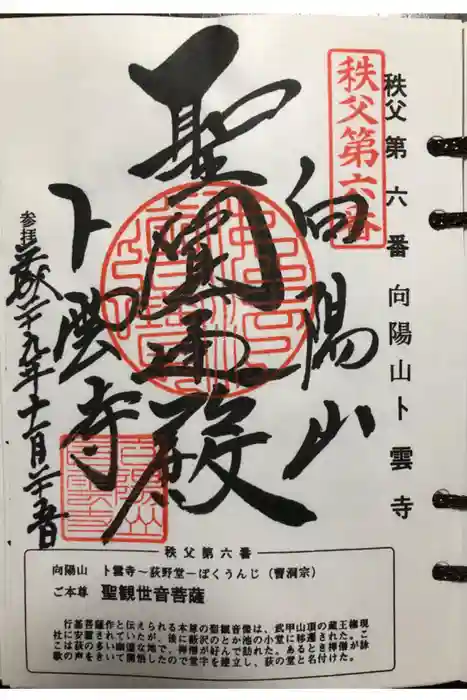 秩父第六番 向陽山卜雲寺
秩父第六番
向陽山
聖圓通殿
卜雲寺
参拝 平成二十九年十一月二十五日
秩父第六番
向陽山 卜雲寺〜荻野堂−ぼくうんじ（曹洞宗）
ご本尊 聖観世音菩薩
行基菩薩作と伝えられる本尊の聖観音像は、武甲山頂の蔵王権現
社に安置されていたが、後に藪沢のとか池の小堂に移遷された。こ
こは荻の多い幽邃な地で、禅僧が好んで訪れた。あるとき禅僧が詠
歌の声をきいて開悟したので堂宇を建立し、荻の堂と名付けた。